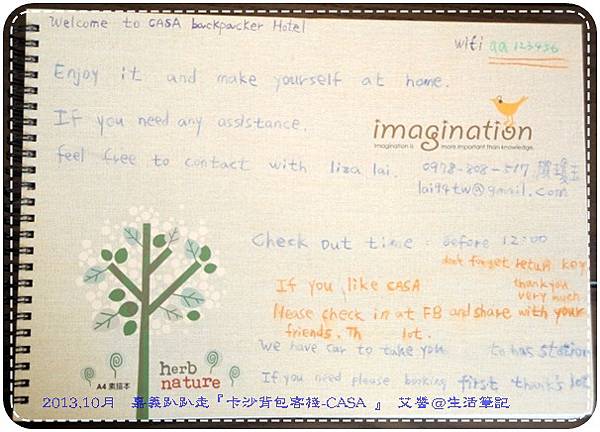 Welcome to CASA backpacker Hotel
wifi aa123456
Enjoy it and make yourself at home.
If you need any assistance.
feel free to contact with liza lai. 0978-808-517
lai94tw@gmail.com
imagination
Imagination is more important than knowledge.
Check out time : before 12:00
don't forget return key
thank you
very much
If you like CASA
Please check in at FB and share with your
friends. Th lot.
We have car to take you to bas station
If you need please booking first thanks lot
A4 素描本
herb
nature
2013.10月 嘉義趴趴走『卡沙背包客棧-CASA 』 艾薈@生活筆記